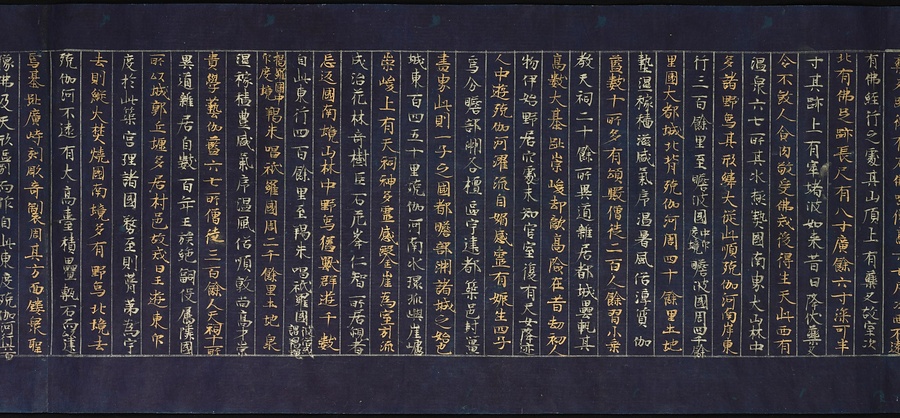 有佛經行之處其山頂上有藥叉故室次
北有佛足跡長尺有八寸廣餘六寸深可半
寸其跡上有窣堵波如來昔日降伏藥叉
令不煞人食肉敬受佛戒後得生天此西有
温泉六七所其水極熱國南界大山林中
多諸野烏其形緯大從此順殑伽河南岸東
行三百餘里至瞻波國中印度境瞻波國周四千餘
里國大都城北背殑伽河周四十餘里土地
墊濕稼穡滋盛氣序温暑風俗淳質伽
藍數十所多有傾毀僧徒二百人餘習小乘
教天祠二十餘所異道雜居都城壘甎其
高數大基趾崇峻却敵高險在昔劫初人
物伊始野居穴處未知宮室復有天女降迹
人中遊殑伽河濯流自媚感靈有娠生四子
焉分瞻部洲各擅區宇建都築邑封壃
畫界此則一子之國都瞻部洲諸城之始也
城東百四五十里殑伽河南水環孤嶼崖巘
崇峻上有天祠神多靈感鑿崖為室引流
成沼花林奇樹巨石危峯仁智所居觀者
忘返國南境山林中野烏猛獸群遊千數
自此東行四百餘里至羯朱嗢祇羅國
羯朱嗢祇羅國周二千餘里土地泉
濕稼穡豊盛氣序温風俗順敦尚高才崇
貴學藝伽藍六七所僧徒三百餘人天祠十所
異道雜居自數百年王族絶嗣役屬隣國
所以城郭丘墟多居村邑故戒日王遊東印
度於此築宮理諸國務至則葺茅為宇
去則縱火焚燒國南境多有野烏北境去
殑伽河不遠有大高臺積壘甎石而建
焉基趾廣峙刻彫奇製周其方面鏤眾聖
像佛及天形區別而作自此東度殑伽河